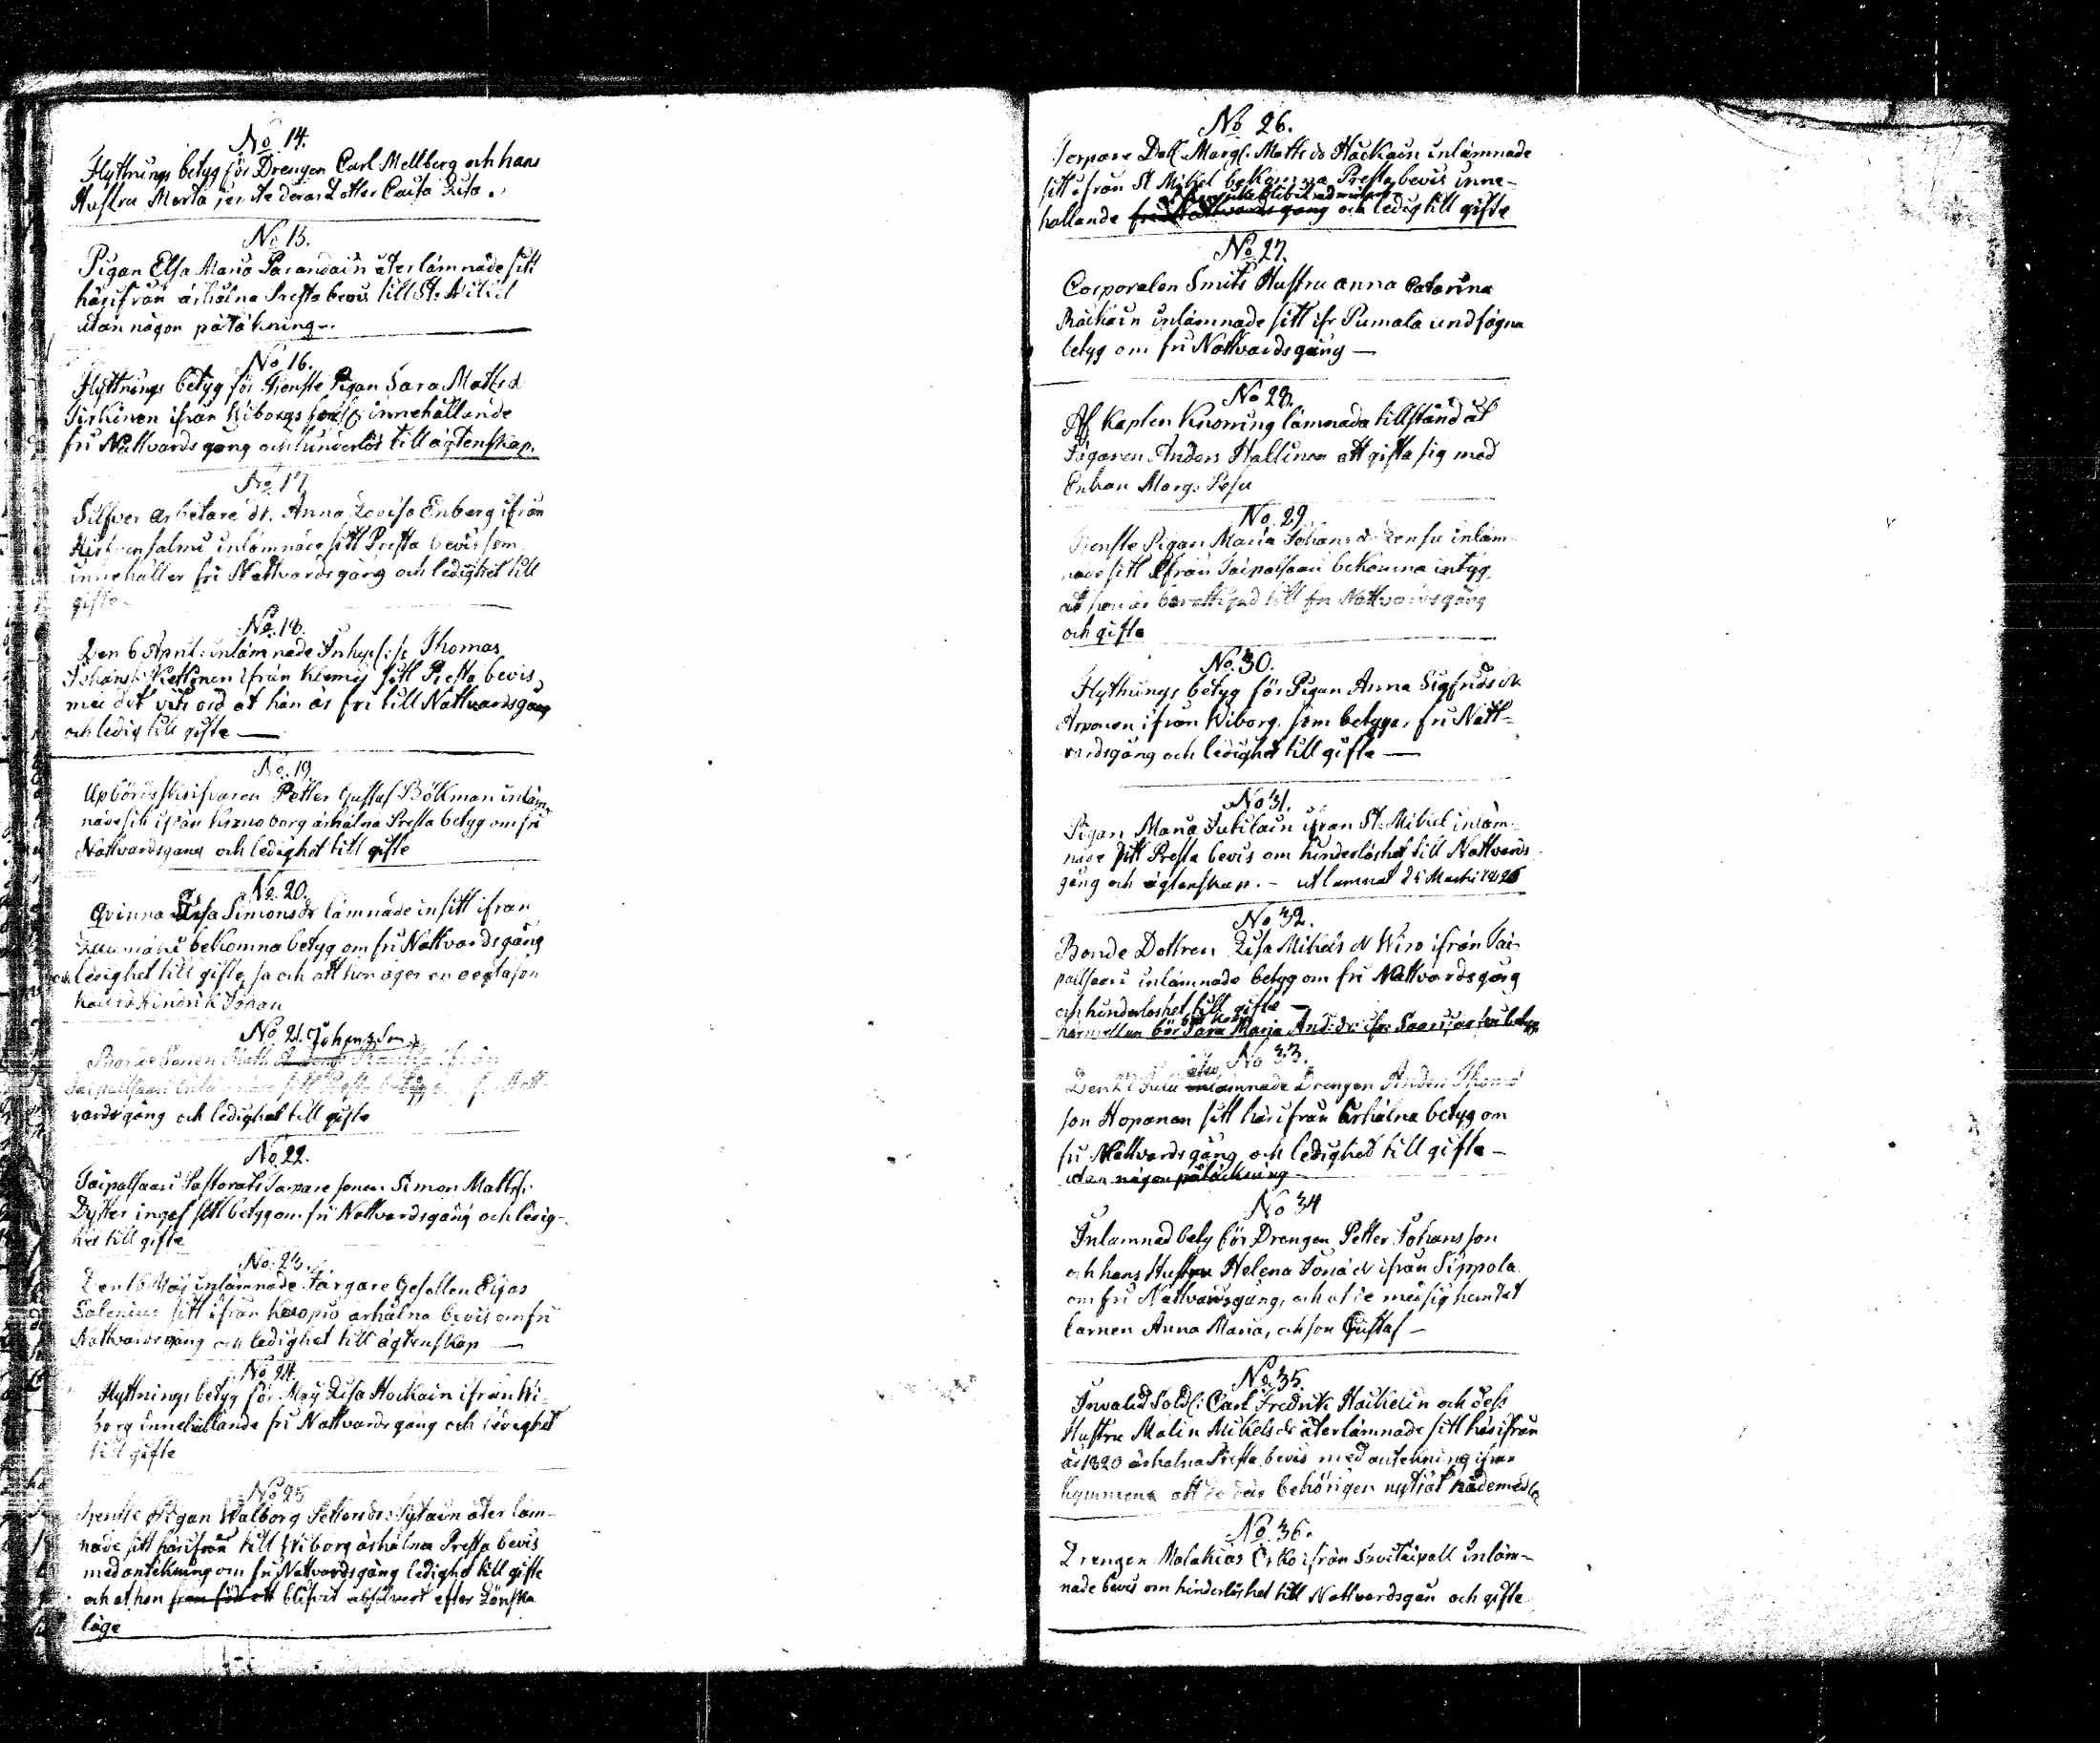 No 14.
Flyttnings betyg för Drengen Carl Mellberg och hans
Hustru Merta, jemte deras Dotter Caisa Lisa.
No 15.
Pigan Elsa Maria Parandain återlämnade sitt
härifrån ärhålna Presta bevis till St. Mikel
utan någon påtäkning
No 16.
Flyttnings betyg för Tjenste Pigan Sara Mattsd
ifrån Wiborgs innehållande
fri Nattvards gang och hinderlös till ägtenskap.
No 17
Silfver arbetare dr. Anna Lovisa Enberg ifrån
inlämnade sitt Presta bevis som
innehåller fri Nattvardsgång och ledighet till
gifte
No. 18.
Den 6 April: inlämnade Inhys: Thomas
Johanss: ifrån sitt Presta bevis,
med det vits ord at hän är fri till Nattvardsgång
och ledig till gifte
No. 19
Upbördsskrifvaren Petter Gustaf Bökman inläm
nade sitt ifrån Kronoborg ärhålna Presta betyg om fri
Nattvardsgang och ledighet till gifte
No. 20.
Qvinna Lisa Simonsdr lämnade in sitt ifrån
bekomna betyg om fri Nattvardsgång
och ledighet till gifte, sa och att hon äger en oegta son
Hindrik Johan
No 21. Johansson
Bonde Sonen Math ifrån
Taipalsaari inlämnade sitt Presta betyg om fri Natt-
vardsgång och ledighet till gifte
No. 22.
Taipalsaari Pastorats Torpare sonen Simon Matts:
Dytter ingaf sitt betyg om fri Nattvardsgång och ledig-
het till gifte
No. 23.
Den 16 Maij inlämnade Färgare Gesällen Elias
Salenius sitt ifrån Kuopio ärhålna bevis om fri
Nattvardsgång och ledighet till ägtenskap
No 24.
Flyttnings betyg för Maij Lisa Hackain ifrån Wi-
borg innehållande fri Nattvardsgång och ledighet
till gifte
No 25
Tjenste Pigan Walborg Pettersdr: återläm-
nade sitt härifrån till Wiborg ärhålna Presta bevis
med antekning om fri Nattvardsgång ledighet till gifte
och at hon blifvit absolverat efter Lönska
läge
No 26.
Torpare Dott. Marg: Matts dr Hackain inlämnade
sitt ifrån St Mikel bekomna Presta bevis inne-
hallande Nattvards gang och ledig till gifte
No. 27.
Corporalen Smits Hustru Anna Catarina
Räikäin inlämnade sitt ifr Pumala undfågna
betyg om fri Nattvardsgång
No 28.
Af Kapten Knorring lämnada tillstånd åt
Jägaren Anders Hallinen att gifta sig med
Enkan Marg: Pesu
No. 29
Tjenste Pigan Maria Johansdr inläm-
nade sitt ifrån Taipalsaari bekomna intyg,
at hon är berättigad till fri Nattvardsgång
och gifte
No. 30.
Flyttnings betyg för Pigan Anna Sigfridsdr
Arponen ifrån Wiborg, som betygar fri Natt-
vardsgång och ledighet till gifte
No 31.
Pigan Maria Jutilain ifran St: Mikel inläm-
nade sitt Presta bevis om hinderlöshet till Nattvards
gång och ägtenskap. - utlamnat 25 Martii 1826
No 32.
Bonde Dottren Lisa Mikels dr Wiro ifrån Tai-
palsaari inlämnade betyg om fri Nattvardsgång
och hinderlöshet till gifte
för Sara Maria And: dr: ifr betyg
No 33.
åter
Den Juli lämnade Drengen Anders Thomæ
son Hoponen sitt härifrån ärhålna betyg om
fri Nattvardsgång och ledighet till gifte
utan någon påtäckning
No 34
Inlamnad betyg för Drengen Petter Johansson
och hans Hustru Helena Jona dr ifrån Sippola
om fri Nattvardsgång, och at de med sig hemtat
barnen Anna Maria, och son Gustaf
No. 35.
Invalid Sold: Carl Fredrik Hackelin och dess
Hustru Malin Mikelsdr återlämnade sitt härifrån
år 1820 ärhalna Presta bevis med antekning ifrån
Kymmene att de der behörigen nyttjat nådemedlen
No. 36.
Drengen Malakias Erko ifrån Savitaipall inläm-
nade bevis om hinderlöshet till Nattvardsgån och gifte